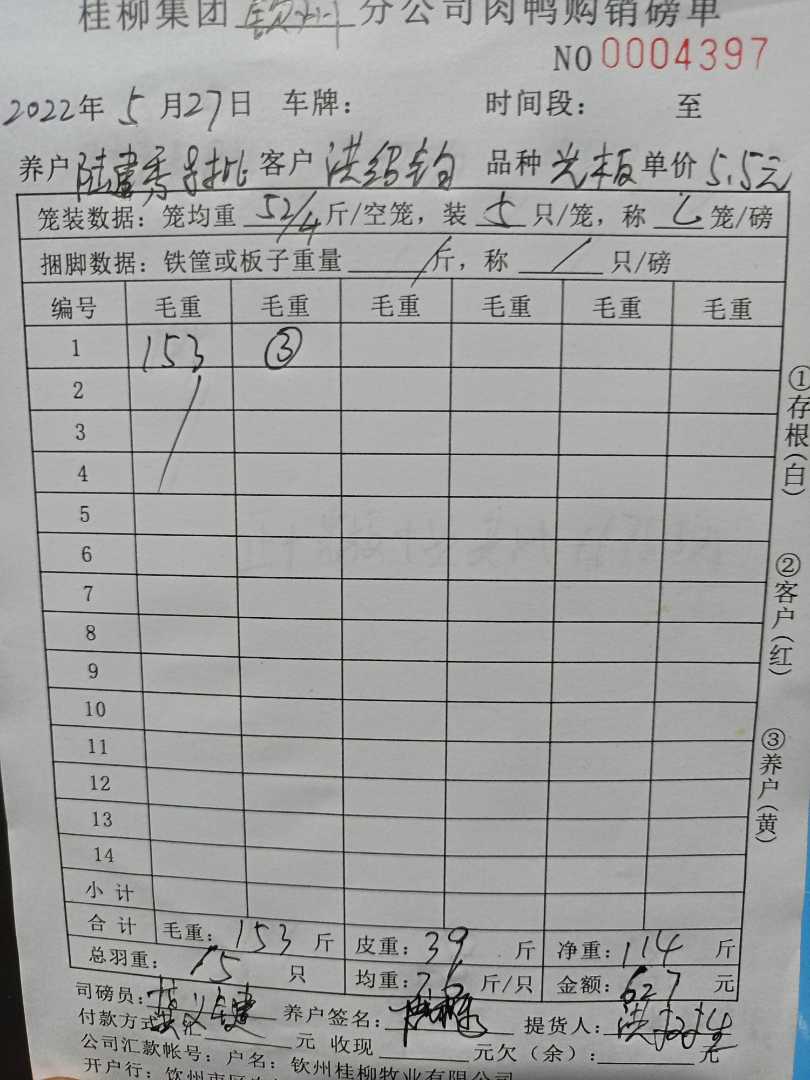 桂柳集团 钦州 分公司肉鸭购销磅单
NO 0004397
2022年 5 月27日 车牌: 时间段: 至
养户 陆建秀 客户 洪绍钧 品种 光板 单价 5.5元
笼装数据: 笼均重 52/4 斤/空笼, 装 5 只/笼, 称 笼/磅
捆脚数据: 铁筐或板子重量 / 斤, 称 / 只/磅
编号 毛重 毛重 毛重 毛重 毛重 毛重
1 153 ③
2
3
4
5
6
7
8
9
10
11
12
13
14
小计
合计 毛重: 153 斤 皮重: 39 斤 净重: 114 斤
总羽重: 15 只 均重: 7.6 斤/只 金额: 627 元
司磅员: 养户签名: 提货人:
付款方式 元 收现 元欠(余): 元
公司汇款帐号: 户名: 钦州桂柳牧业有限公司
开户行: 钦州市区
①存根(白)
②客户(红)
③养户(黄)